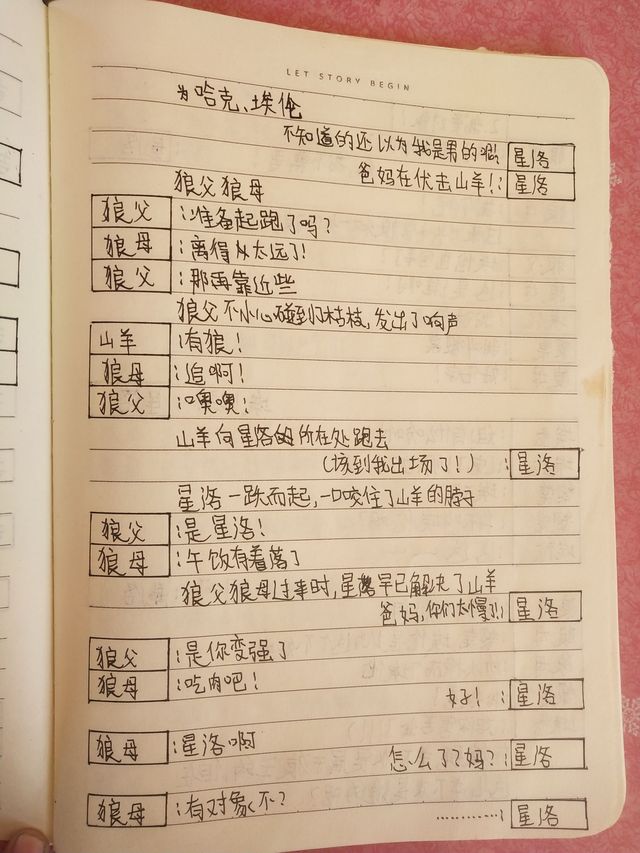 LET STORY BEGIN
为哈克、埃伦
不知道的还以为我是男的呢! 星洛
爸妈在伏击山羊!: 星洛
狼父狼母
狼父:准备起跑了吗?
狼母:离得太远了!
狼父:那再靠近些
狼父不小心碰到了枯枝,发出了响声
山羊:有狼!
狼母:追啊!
狼父:噢噢!
山羊向星洛的所在处跑去
(该到我出场了!):星洛
星洛一跃而起,一口咬住了山羊的脖子
狼父:是星洛!
狼母:午饭有着落了
狼父狼母过来时,星洛早已解决了山羊
爸妈,你们太慢了!: 星洛
狼父:是你变强了
狼母:吃肉吧!
好!:星洛
狼母:星洛啊
怎么了?妈?:星洛
狼母:有对象不?
…………:星洛